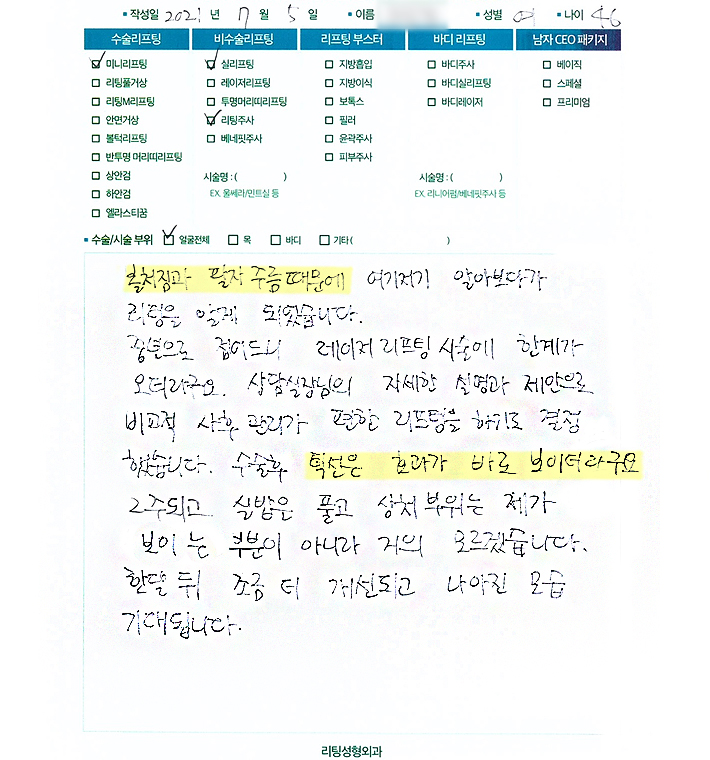 작성일 2021 년 7 월 5 일 이름 성별 여 나이 46
수술리프팅 비수술리프팅 리프팅 부스터 바디 리프팅 남자 CEO 패키지
미니리프팅 실리프팅 지방흡입 바디주사 베이직
리팅풀거상 레이저리프팅 지방이식 바디실리프팅 스페셜
리팅M리프팅 투명머리띠리프팅 보톡스 바디레이저 프리미엄
안면거상 리팅주사 필러
볼턱리프팅 베네핏주사 윤곽주사
반투명 머리띠리프팅 피부주사
상안검 시술명 : ( ) 시술명 : ( )
하안검 EX. 울쎄라/민트실 등 EX. 리니어펌/베네핏주사 등
엘라스티꿈
수술/시술 부위 얼굴전체 목 바디 기타 ( )
볼처짐과 팔자 주름때문에 여기저기 알아보다가
리팅을 알게 되었습니다.
중년으로 접어드니 레이저 리프팅 시술에 한계가
오더라구요. 상담실장님의 자세한 설명과 제안으로
비교적 사후 관리가 편한 리프팅을 하기로 결정
했습니다. 수술후 턱선은 효과가 바로 보이더라구요
2주되고 실밥은 풀고 상처 부위는 제가
보이는 부분이 아니라 거의 모르겠습니다.
한달 뒤 조금 더 개선되고 나아진 모습
기대됩니다.
리팅성형외과